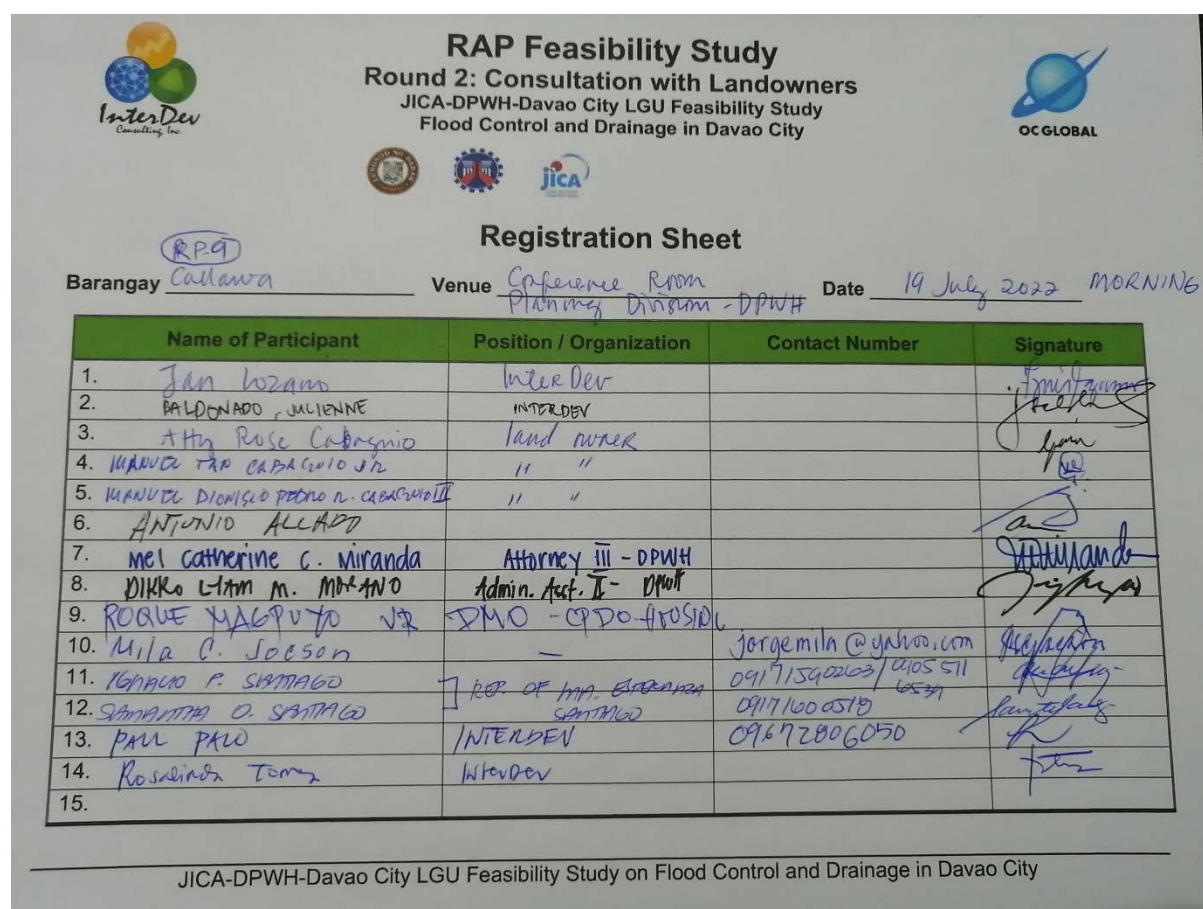 InterDev
Consulting Inc.
RAP Feasibility Study
Round 2: Consultation with Landowners
JICA-DPWH-Davao City LGU Feasibility Study
Flood Control and Drainage in Davao City
OC GLOBAL
JICA
Registration Sheet
RP-9
Barangay Callawa Venue Conference Room Planning Division - DPWH Date 19 July 2022 MORNING
Name of Participant Position / Organization Contact Number Signature
1. Jan Lozano InterDev
2. BALDONADO, JULIENNE INTERDEV
3. Atty Rose Cabaguio land owner
4. MANUEL TAN CABAGUIO JR " "
5. MANUEL DIONISIO PEDRO R. CABAGUIO III " "
6. ANTONIO ALCADO
7. Mel Catherine C. Miranda Attorney III - DPWH
8. DIKKO LIAM M. MORANO Admin. Asst. II - DPWH
9. ROQUE MAGPUYO JR DMO - CPDO
10. Mila C. Jocson — jorgemila@yahoo.com
11. IGNACIO P. SANTIAGO REP. OF MA. ESPERANZA SANTIAGO 09171590263/ 0905 511
12. SAMANTHA O. SANTIAGO 09171600518
13. PAUL PALO INTERDEV 09672806050
14. Rosalinda InterDev
15.
JICA-DPWH-Davao City LGU Feasibility Study on Flood Control and Drainage in Davao City